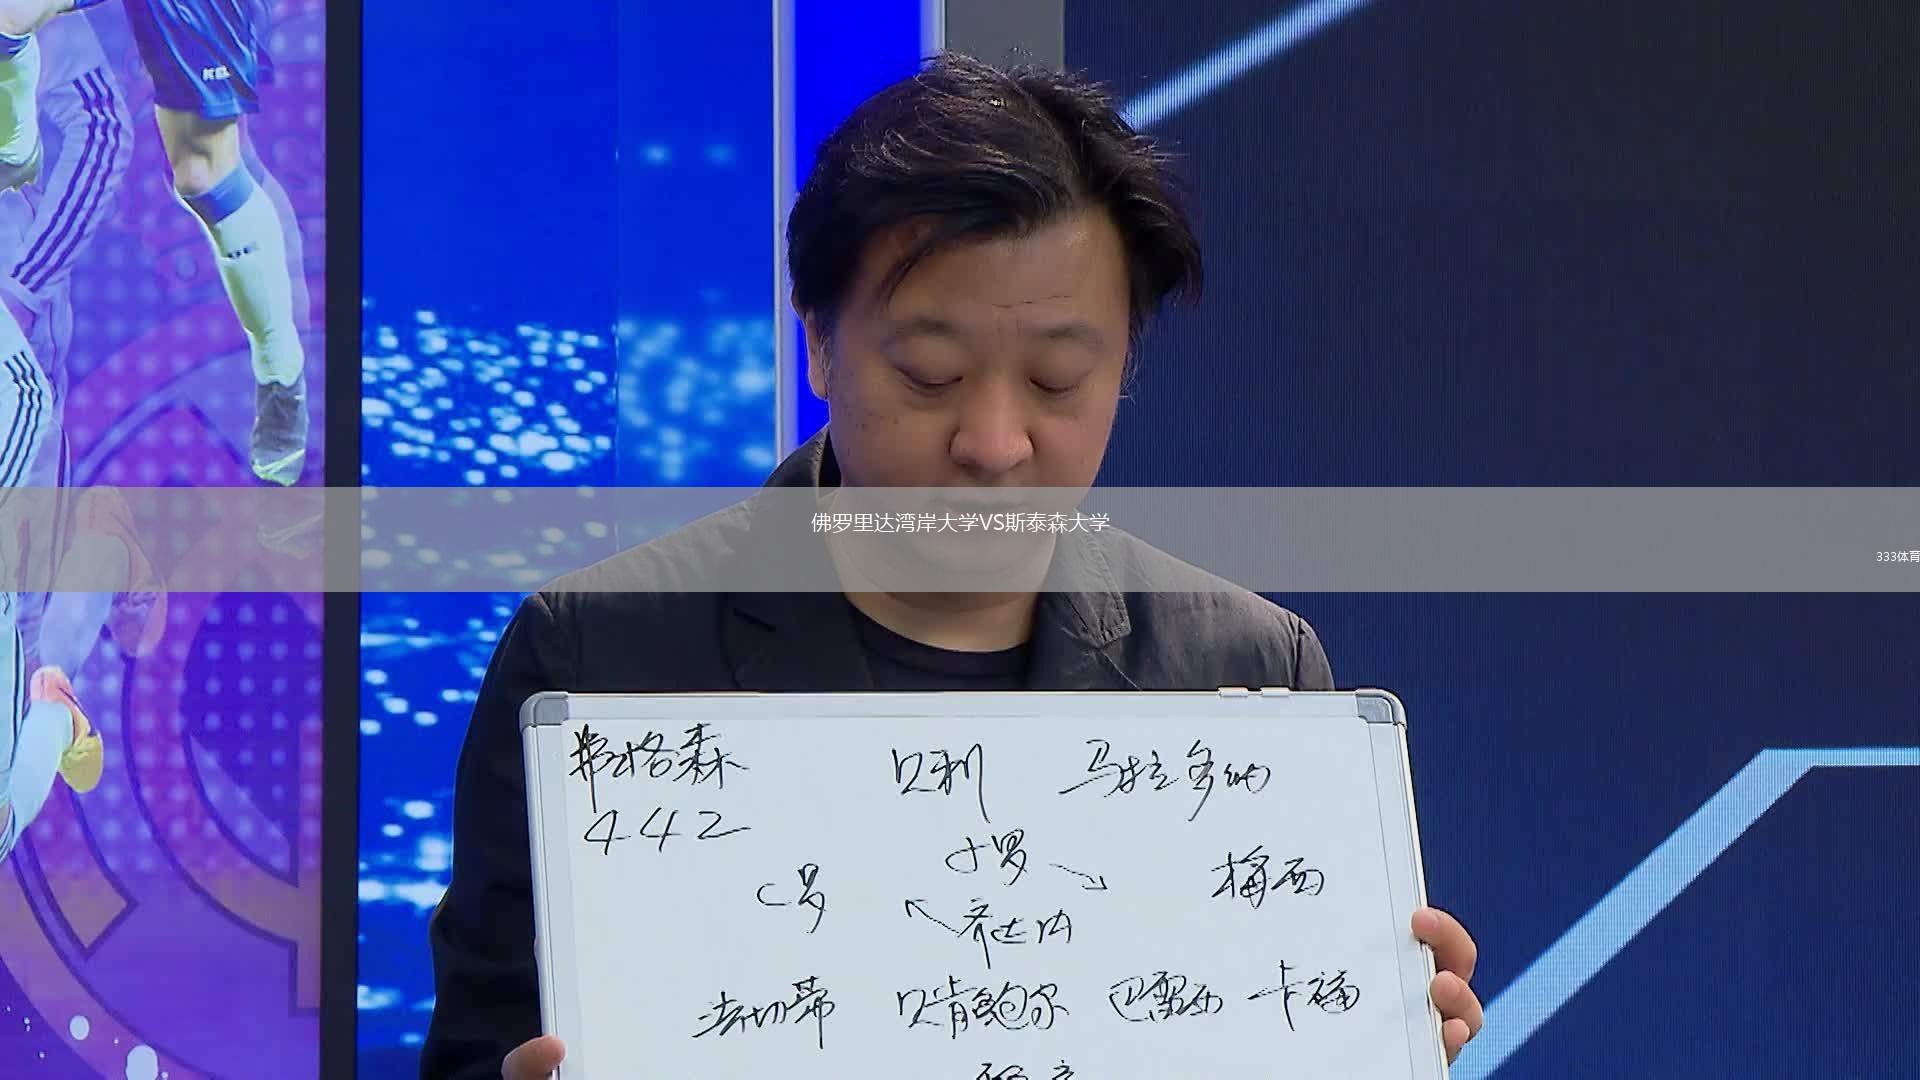 佛罗里达湾岸大学VS斯泰森大学
333体育
弗格森 贝利 马拉多纳
442
小罗
C罗 梅西
齐达内
法切蒂 贝肯鲍尔 巴雷西 卡福